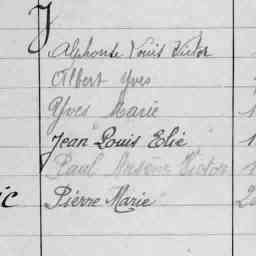 J
Alphonse Louis Victor
Albert Yves
Yves Marie
Jean Louis Elie
Paul Arsène Victor
ic Pierre Marie